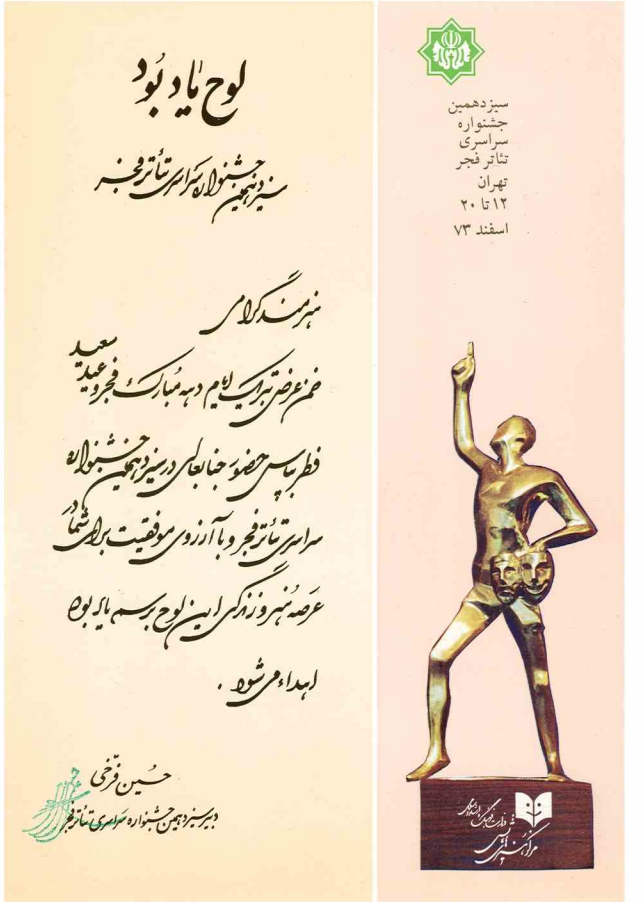 لوح یاد بود
سیزدهمین جشنواره سراسری تئاتر فجر
هنرمند گرامی
ضمن عرض تبریک ایام دهه مبارک فجر و عید سعید
فطر بپاس حضور جنابعالی در سیزدهمین جشنواره
سراسری تئاتر فجر و با آرزوی موفقیت برای شما در
عرصه هنر و زندگی این لوح برسم یاد بود
اهداء می شود .
حسین فرّخی
دبیر سیزدهمین جشنواره سراسری تئاتر فجر
سیزدهمین
جشنواره
سراسری
تئاتر فجر
تهران
۱۲ تا ۲۰
اسفند ۷۳
وزارت فرهنگ و ارشاد اسلامی
مرکز هنرهای نمایشی